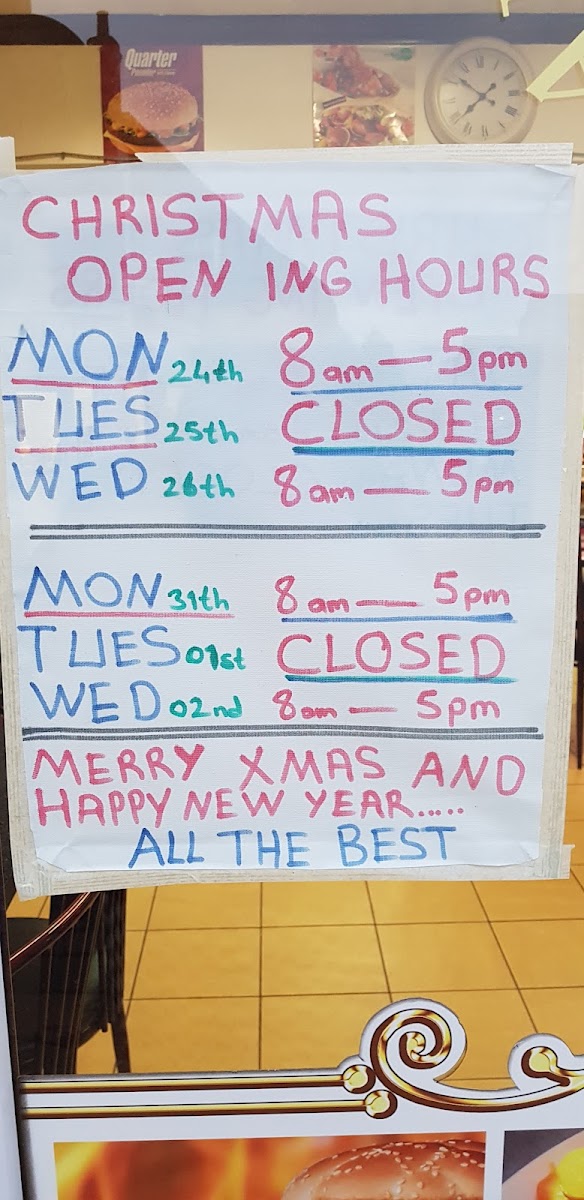 Quarter
Pounder
CHRISTMAS
OPEN ING HOURS
MON 24th 8am — 5pm
TUES 25th CLOSED
WED 26th 8am — 5pm
MON 31th 8am — 5pm
TUES 01st CLOSED
WED 02nd 8am — 5pm
MERRY XMAS AND
HAPPY NEW YEAR.....
ALL THE BEST